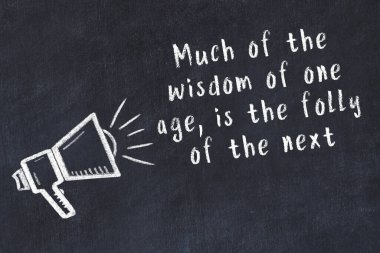 Much of the
wisdom of one
age, is the folly
of the next